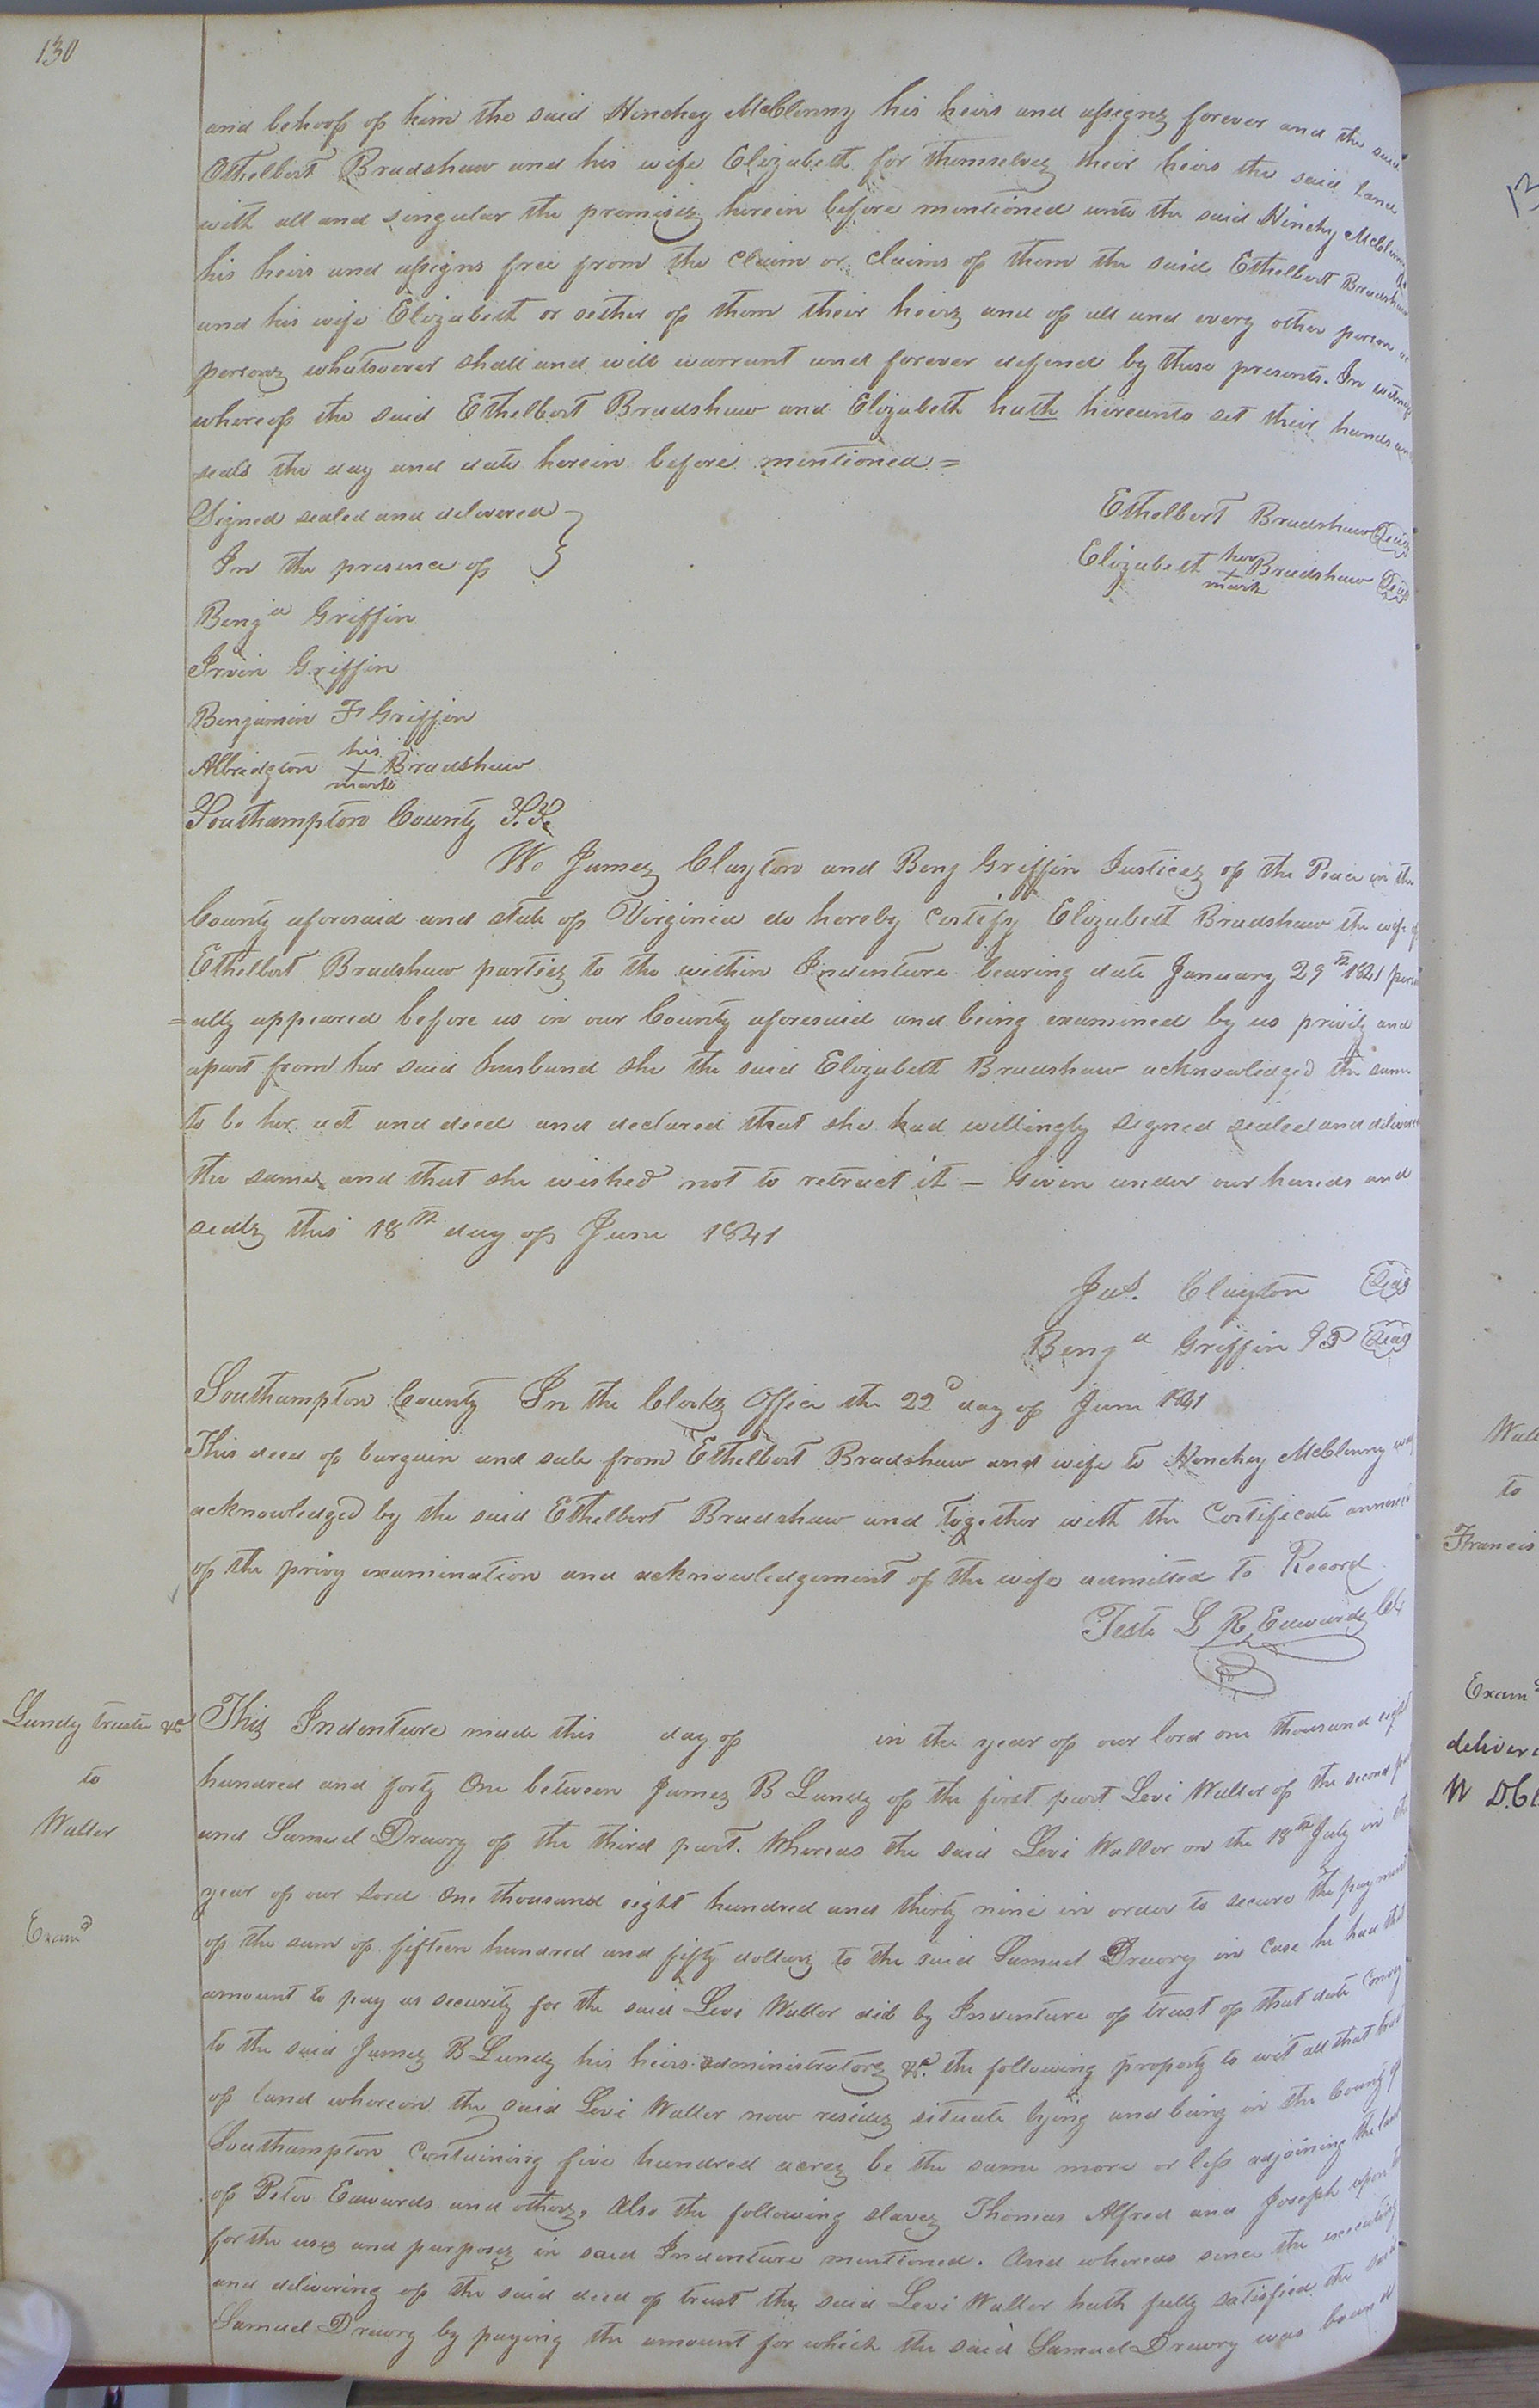 130
and behoof of him the said Hinchey McClenny his heirs and assigns forever and the said
Ethelbert Bradshaw and his wife Elizabeth for themselves their heirs the said Land
with all and singular the premises herein before mentioned unto the said Hinchy McClenny
his heirs and assigns free from the claim or claims of them the said Ethelbert Bradshaw
and his wife Elizabeth or either of them their heirs and of all and every other person or
persons whatsoever shall and will warrant and forever defend by these presents. In witness
whereof the said Ethelbert Bradshaw and Elizabeth hath hereunto set their hands and
seals the day and date herein before mentioned =
Signed sealed and delivered
In the presence of
Ethelbert Bradshaw Seal
Elizabeth her + mark Bradshaw Seal
Benja Griffin
Irvin Griffin
Benjamin F Griffin
Albridgton his + mark Bradshaw
Southampton County S.S.
We James Clayton and Benj Griffin Justices of the Peace in the
County aforesaid and state of Virginia do hereby certify Elizabeth Bradshaw the wife of
Ethelbert Bradshaw parties to the within Indenture bearing date January 29th 1841 person
=ally appeared before us in our County aforesaid and being examined by us privily and
apart from her said husband she the said Elizabeth Bradshaw acknowledged the same
to be her act and deed and declared that she had willingly signed sealed and delivered
the same and that she wished not to retract it – Given under our hands and
seals this 18th day of June 1841
Jas. Clayton Seal
Benja Griffin JP Seal
Southampton County In the Clerks Office the 22d day of June 1841
This deed of bargain and sale from Ethelbert Bradshaw and wife to Hinchey McClenny was
acknowledged by the said Ethelbert Bradshaw and together with the Certificate annexed
of the privy examination and acknowledgement of the wife admitted to Record
Teste L R Edwards Clk
Lundy trustee &c
to
Waller
Examd
This Indenture made this day of in the year of our lord one thousand eight
hundred and forty One between James B Lundy of the first part Levi Waller of the second part
and Samuel Drewry of the third part. Whereas the said Levi Waller on the 18th July in the
year of our Lord One thousand eight hundred and thirty nine in order to secure the payment
of the sum of fifteen hundred and fifty dollars to the said Samuel Drewry in Case he had that
amount to pay as security for the said Levi Waller did by Indenture of trust of that date Convey
to the said James B Lundy his heirs administrators &c. the following property to wit all that tract
of land whereon the said Levi Waller now resides situate lying and being in the County of
Southampton Containing five hundred acres be the same more or less adjoining the land
of Peter Edwards and others, Also the following slaves Thomas Alfred and Joseph upon
for the uses and purposes in said Indenture mentioned. And whereas since the executing
and delivering of the said deed of trust the said Levi Waller hath fully satisfied the said
Samuel Drewry by paying the amount for which the said Samuel Drewry was bound
13
Wall
to
Francis
Examd
deliver
W D.